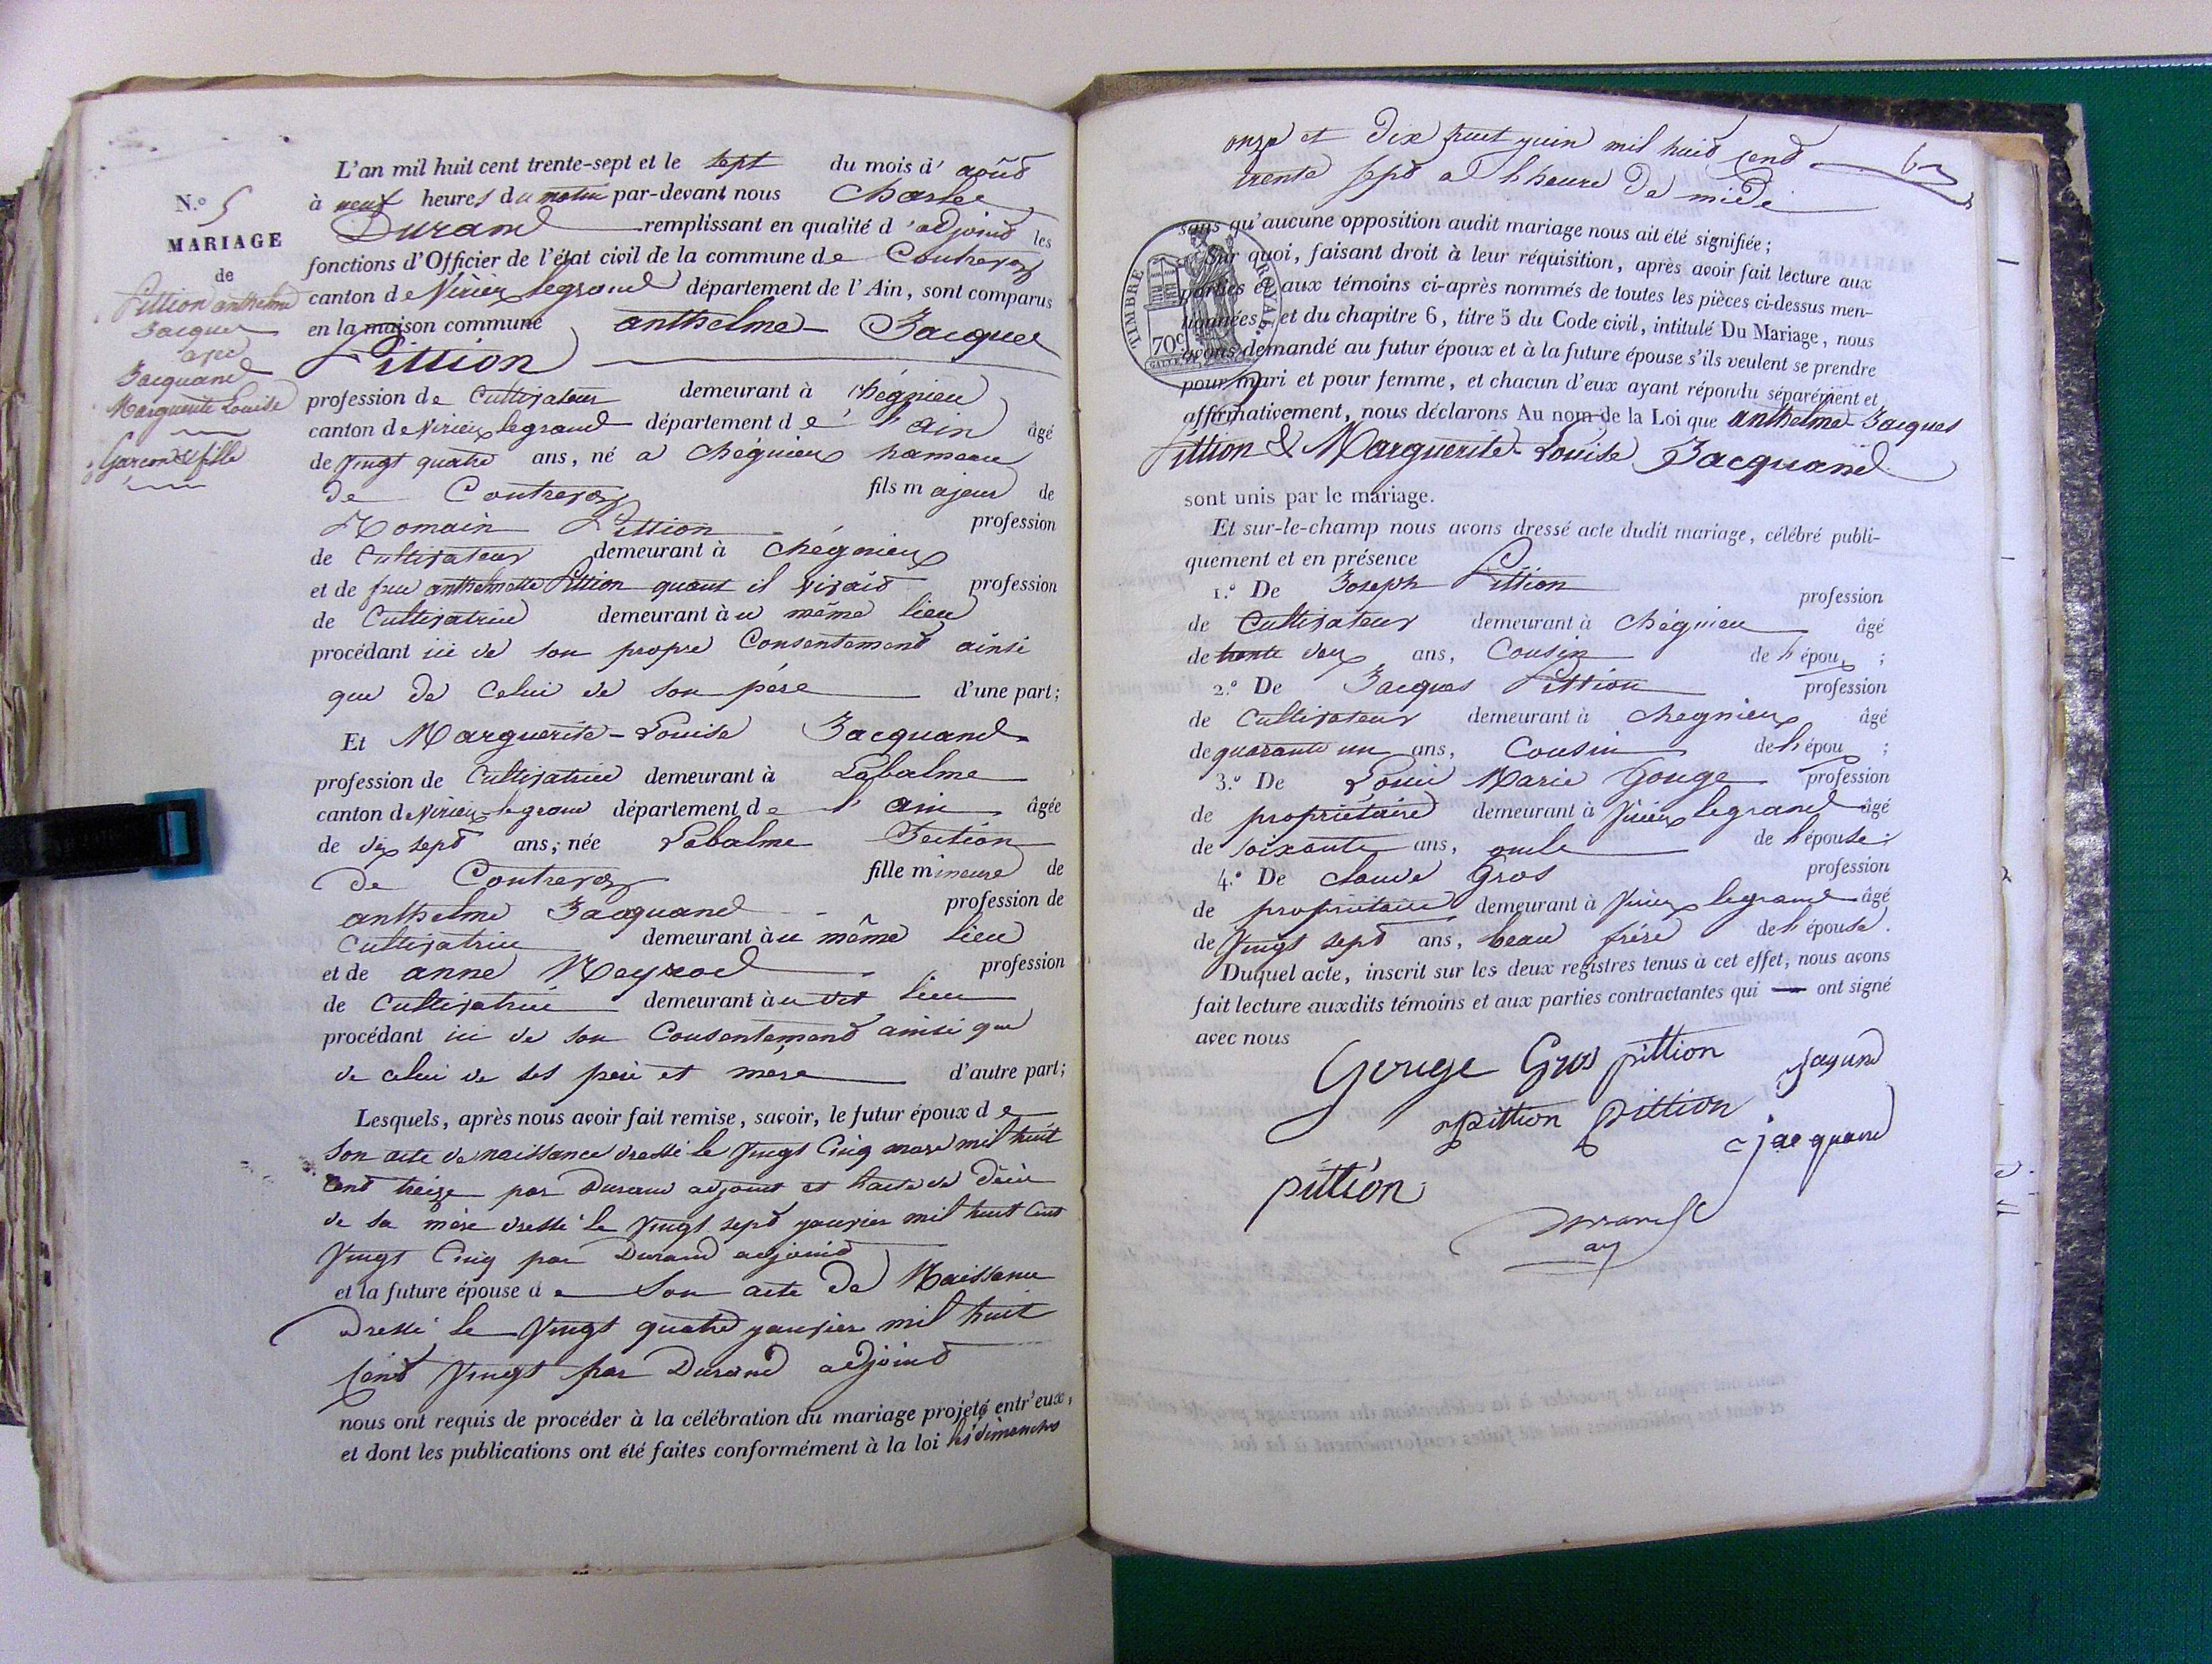 N.o 5
MARIAGE
de
Pittion anthelme
Jacques
avec
Jacquand
Marguerite Louise
Garcon & fille
L'an mil huit cent trente-sept et le sept du mois d'août
à neuf heures du matin par-devant nous Charles
Durand remplissant en qualité d'adjoint les
fonctions d'Officier de l'état civil de la commune de Contrevoz
canton de Virieu legrand département de l'Ain, sont comparus
en la maison commune anthelme Jacques
Pittion
profession de Cultivateur demeurant à Chégnieu
canton de Virieux legrand département de l'ain âgé
de vingt quatre ans, né a Chégnieux hameau
de Contrevoz fils majeur de
Romain Pittion profession
de Cultivateur demeurant à Chégnieux
et de feue anthelmette Pittion quant il vivait profession
de Cultivatrice demeurant au même lieu
procédant ici de son propre Consentement ainsi
que de Celui de son père d'une part;
Et Marguerite-Louise Jacquand
profession de Cultivatrice demeurant à Labalme
canton de Virieux-legrand département de l'ain âgée
de dix sept ans, née Labalme Section
de Contrevoz fille mineure de
anthelme Jacquand profession de
Cultivatrice demeurant au même lieu
et de anne profession
de Cultivatrice demeurant au dit lieu
procédant ici de son Consentement ainsi que
de celui de ses père et mère d'autre part;
Lesquels, après nous avoir fait remise, savoir, le futur époux de
son acte de naissance dressé le vingt Cinq mars mil huit
Cent treize par Durand adjoint et l'acte de décès
de sa mère dressé le vingt sept janvier mil huit Cent
vingt Cinq par Durand adjoint
et la future épouse de Son acte de Naissance
dressé le vingt quatre janvier mil huit
Cent vingt par Durand adjoint
nous ont requis de procéder à la célébration du mariage projeté entr'eux,
et dont les publications ont été faites conformément à la loi les dimanches
63
onze et dix huit juin mil huit cent
trente sept a l'heure de midi
TIMBRE ROYAL
70c
sans qu'aucune opposition audit mariage nous ait été signifiée;
Sur quoi, faisant droit à leur réquisition, après avoir fait lecture aux
parties et aux témoins ci-après nommés de toutes les pièces ci-dessus men-
tionnées, et du chapitre 6, titre 5 du Code civil, intitulé Du Mariage, nous
avons demandé au futur époux et à la future épouse s'ils veulent se prendre
pour mari et pour femme, et chacun d'eux ayant répondu séparément et
affirmativement, nous déclarons Au nom de la Loi que anthelme Jacques
Pittion & Marguerite-Louise Jacquand
sont unis par le mariage.
Et sur-le-champ nous avons dressé acte dudit mariage, célébré publi-
quement et en présence
1.o De Joseph Pittion profession
de Cultivateur demeurant à Chégnieu âgé
de trente deux ans, Cousin de l'époux;
2.o De Jacques Pittion profession
de Cultivateur demeurant à Chegnieux âgé
de quarante un ans, Cousin de l'époux;
3.o De Louis Marie Gouge profession
de propriétaire demeurant à Virieux legrand âgé
de soixante ans, oncle de l'épouse;
4.o De Claude Gros profession
de propriétaire demeurant à Virieux legrand âgé
de Vingt sept ans, beau frére de l'épouse.
Duquel acte, inscrit sur les deux registres tenus à cet effet, nous avons
fait lecture auxdits témoins et aux parties contractantes qui ont signé
avec nous
Gros pittion
pittion pittion
jacquand
pittion
Durand